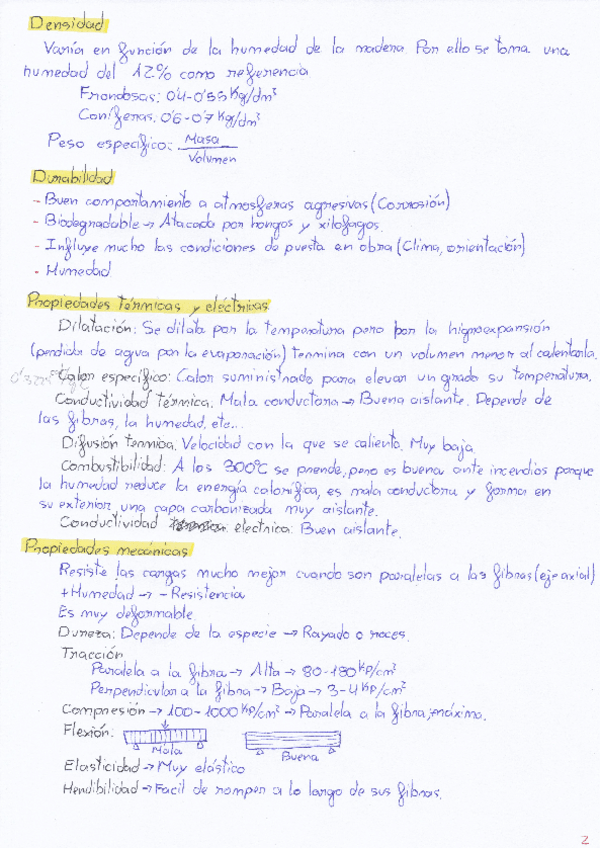 Densidad
Varía en función de la humedad de la madera. Por ello se toma una
humedad del 12% como referencia
Frondosas: 0'4-0'55 Kg/dm³
Coníferas: 0'6-0'7 Kg/dm³
Peso específico: Masa
Volumen
Durabilidad
- Buen comportamiento a atmosferas agresivas (Corrosión)
- Biodegradable → Atacada por hongos y xilofagos.
- Influye mucho las condiciones de puesta en obra (Clima, orientación)
- Humedad
Propiedades térmicas y eléctricas
Dilatación: Se dilata por la temperatura pero por la higroexpansión
(perdida de agua por la evaporación) termina con un volumen menor al calentarla.
Calor especifico: Calor suministrado para elevar un grado su temperatura.
Conductividad térmica: Mala conductora → Buena aislante. Depende de
las fibras, la humedad, etc...
Difusión termica. Velocidad con la que se calienta. Muy baja.
Combustibilidad: A los 300°C se prende, pero es buena ante incendios porque
la humedad reduce la energía calorífica, es mala conductora y forma en
su exterior, una capa carbonizada muy aislante.
Conductividad electrica: Buen aislante.
Propiedades mecánicas
Resiste las cargas mucho mejor cuando son paralelas a las fibras (eje axial)
+Humedad → -Resistencia
Es muy deformable
Dureza: Depende de la especie → Rayado o roces.
Tracción
Paralela a la fibra → Alta → 80-180 Kp/cm²
Perpendicular a la fibra → Baja → 3-4 Kp/cm²
Compresión → 100-1000 Kp/cm² → Paralela a la fibra, máximo.
Flexión:
Mala
Buena
Elasticidad → Muy elástico
Hendibilidad → Facil de romper a lo largo de sus fibras.
2